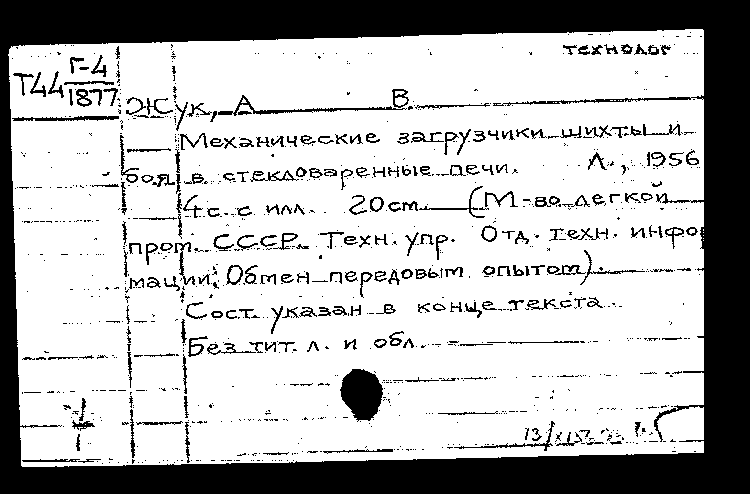 технолог
Т44 Г-4
1877
Жук, А В.
Механические загрузчики шихты и
боя в стекловаренные печи. Л., 1956
4 с. с илл. 20 см. (М-во легкой
пром. СССР. Техн. упр. Отд. техн. инфор
мации. Обмен передовым опытом).
Сост. указан в конце текста.
Без тит. л. и обл. -